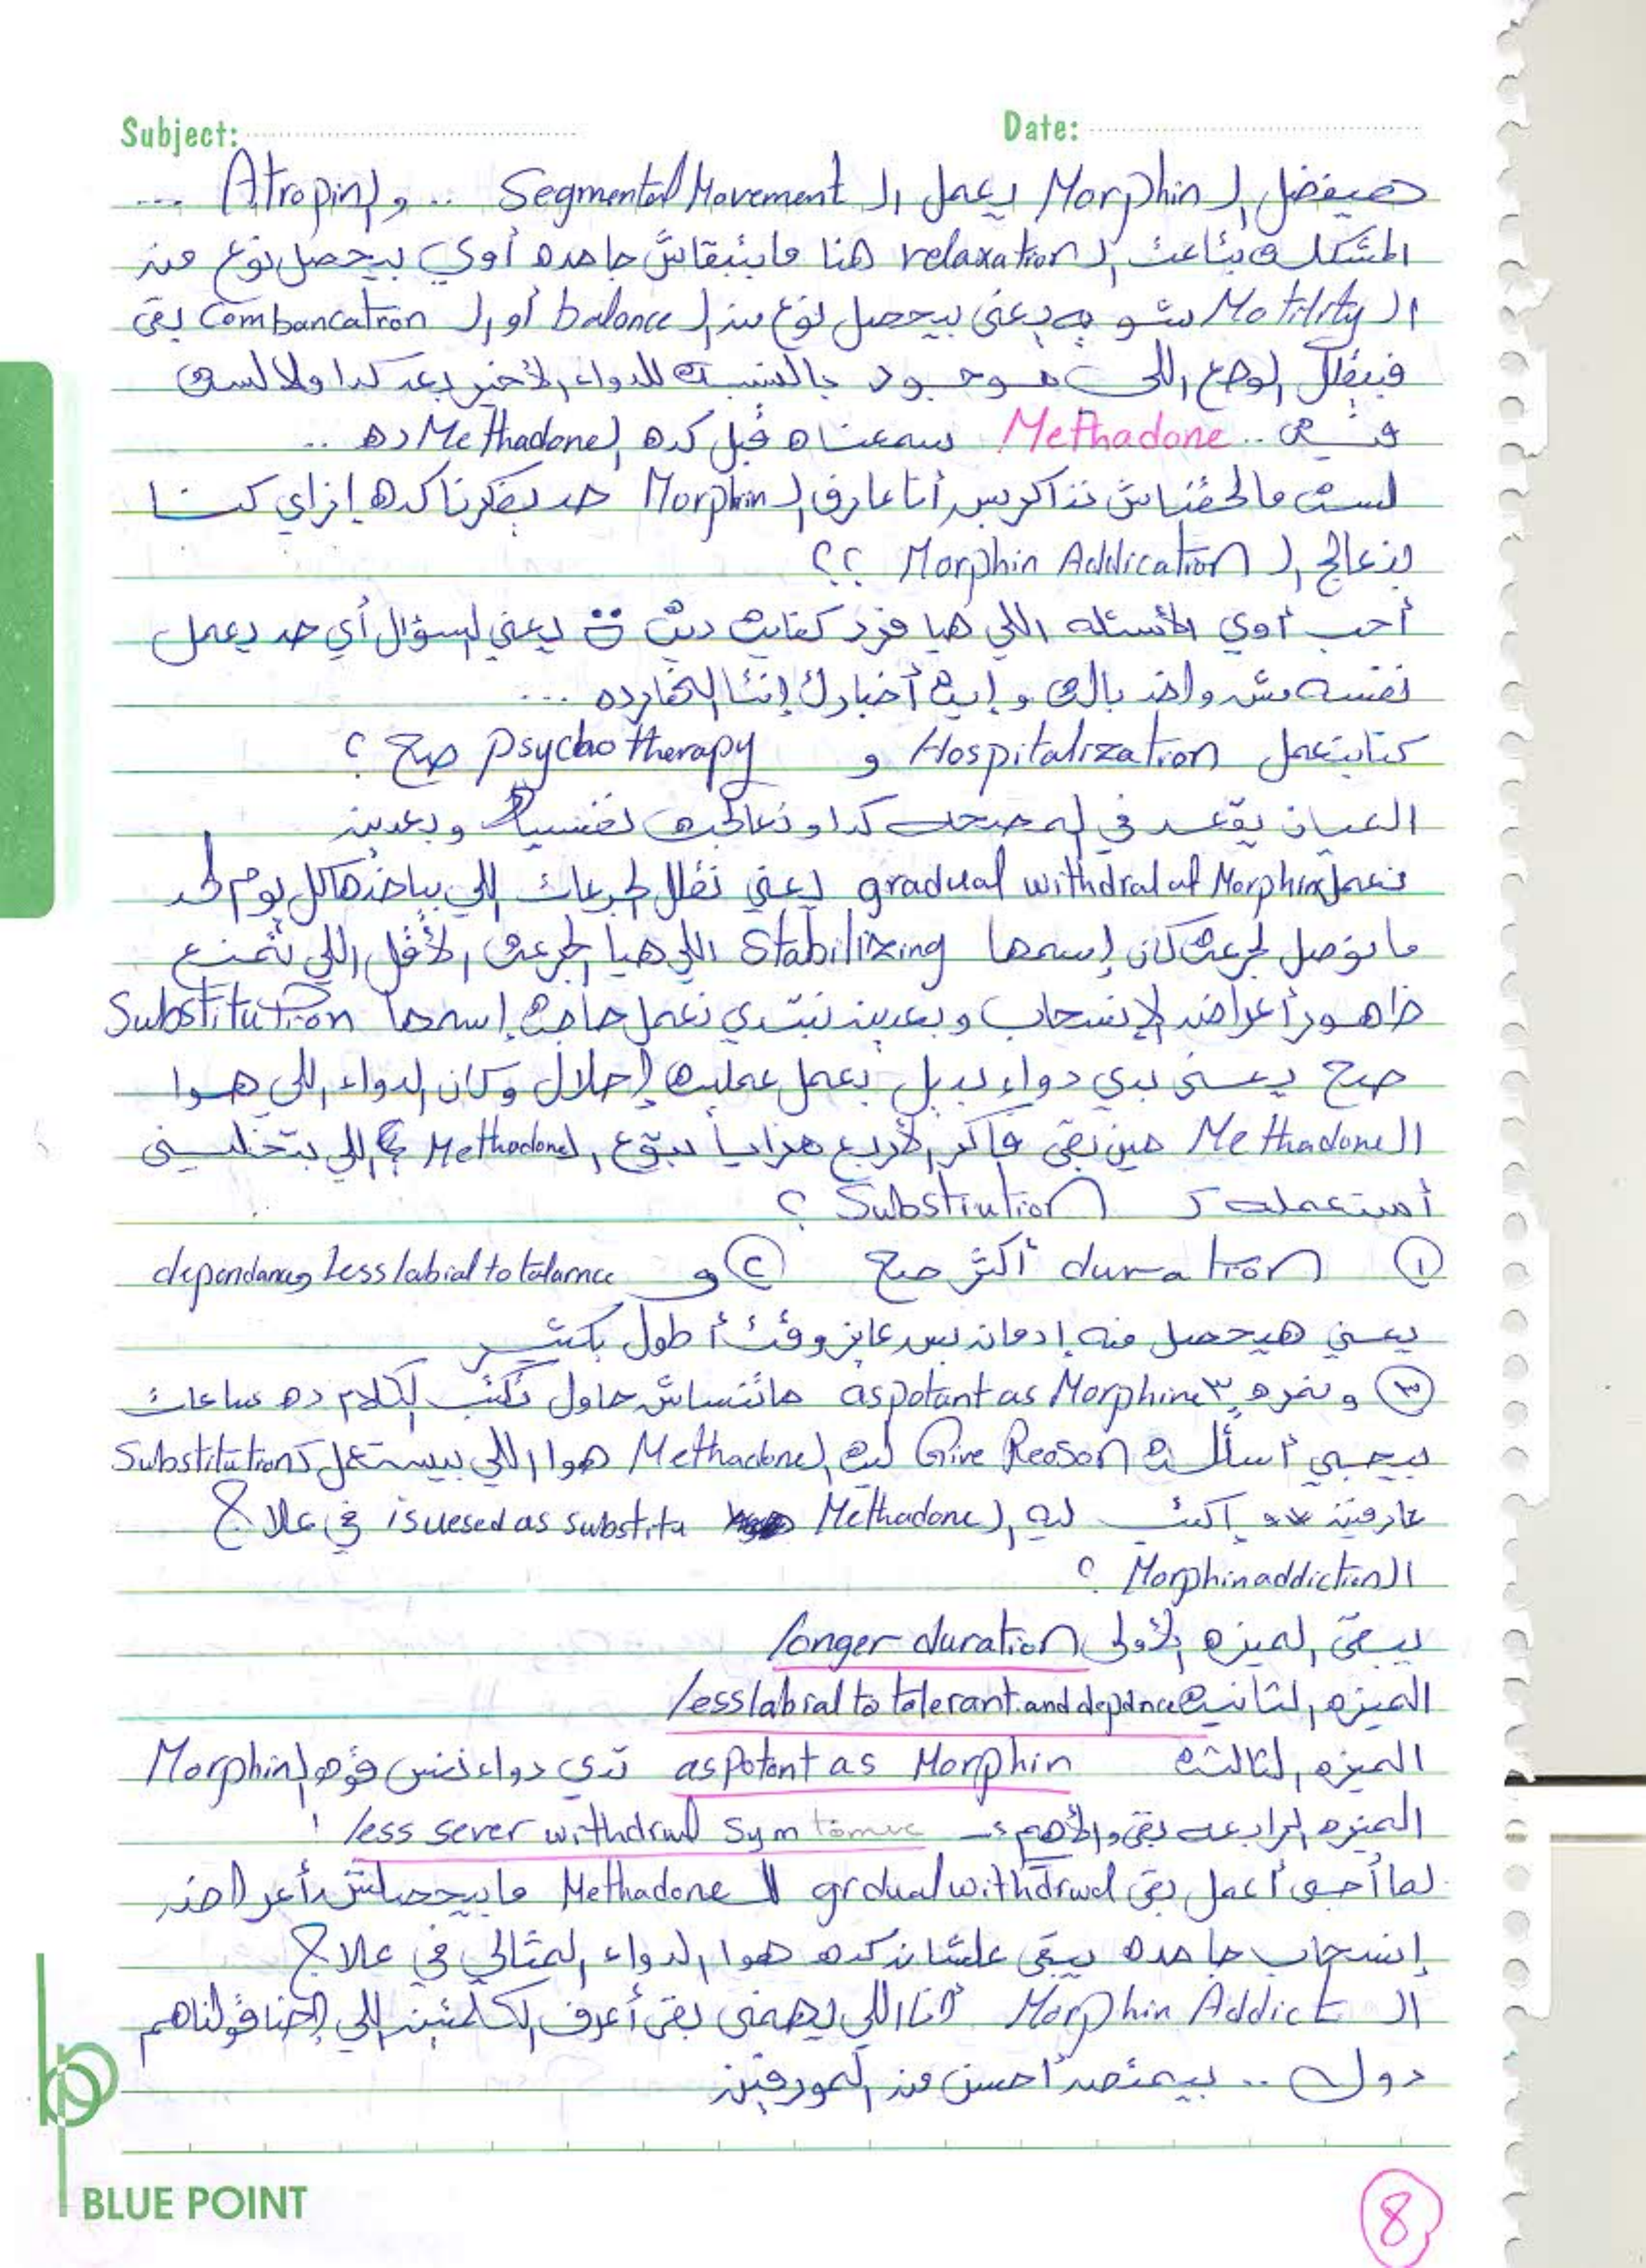 Subject: Date:
هيفضل ال Morphin يعمل ال Segmental Movement .. و ال Atropin ...
المشكلة بتاعت ال relaxation هنا مابتبقاش جامده أوي بيحصل نوع من
ال Motility شويه يعني بيحصل نوع من ال balance أو ال Combancation بقى
فبيقلل الوضع اللي موجود بالنسبة للدواء الأخير بعد كدا ولا لسه
في .. Methadone سمعناه قبل كده ال Methadone ده ..
لسه مالحقناش نذاكر بس أنا عارف ال Morphin حد يفكرنا كده إزاي كنا
بنعالج ال Morphin Addication ؟؟
أحب أوي الأسئله اللي هيا يعني لسؤال أي حد يعمل
نفسه مش واخد باله و إيه أخبارك إنتا النهارده ...
كنا بنعمل Hospitalization و psycho therapy صح ؟
العيان يقعد في المصحه كدا و نعالجه نفسيا و بعدين
نعمل gradual withdral of Morphin يعني نقلل الجرعات اللي بياخدها كل يوم لحد
ما نوصل لجرعه كان إسمها Stabilizing اللي هيا الجرعه الأقل اللي تمنع
ظاهور أعراض الإنسحاب و بعدين نبتدي نعمل حاجه إسمها Substitution
صح يعني ندي دواء بديل نعمل عملية إحلال وكان الدواء اللي هوا
ال Methadone مين بقى فاكر الأربع مزايا بتوع ال Methadone اللي بتخليني
أستعمله ك Substiution ؟
① duration أكثر صح ② و dependancy less labial to tolarnce
يعني هيحصل منه إدمان بس عايز وقت أطول بكتير
③ و نمره ٣ as potant as Morphine ماتنساش حاول تكتب الكلام ده ساعات
بيجي أسألة Give Reason ليه ال Methadone هوا اللي بيستعمل ك Substitution
عارفين أكتب ليه ال Methadone isuesed as substitu في علاج
ال Morphin addiction ؟
يبقى الميزه الأولى longer duration
الميزه التانية less labial to tolerant and depdnce
الميزه التالته as potent as Morphin تدي دواء نفس قوه ال Morphin
الميزه الرابعه بقى والأهم :- less sever withdrwl Symtomuc !
لما أجى أعمل بقى grdual withdrwal لل Methadone مابيحصلش أعراض
إنسحاب جامده يبقى علشان كده هوا الدواء المثالي في علاج
ال Morphin Addict أنا اللي يهمني بقى أعرف الكلمتين اللي إحنا قولناهم
دول .. بيمتص أحسن من المورفين
BLUE POINT
8